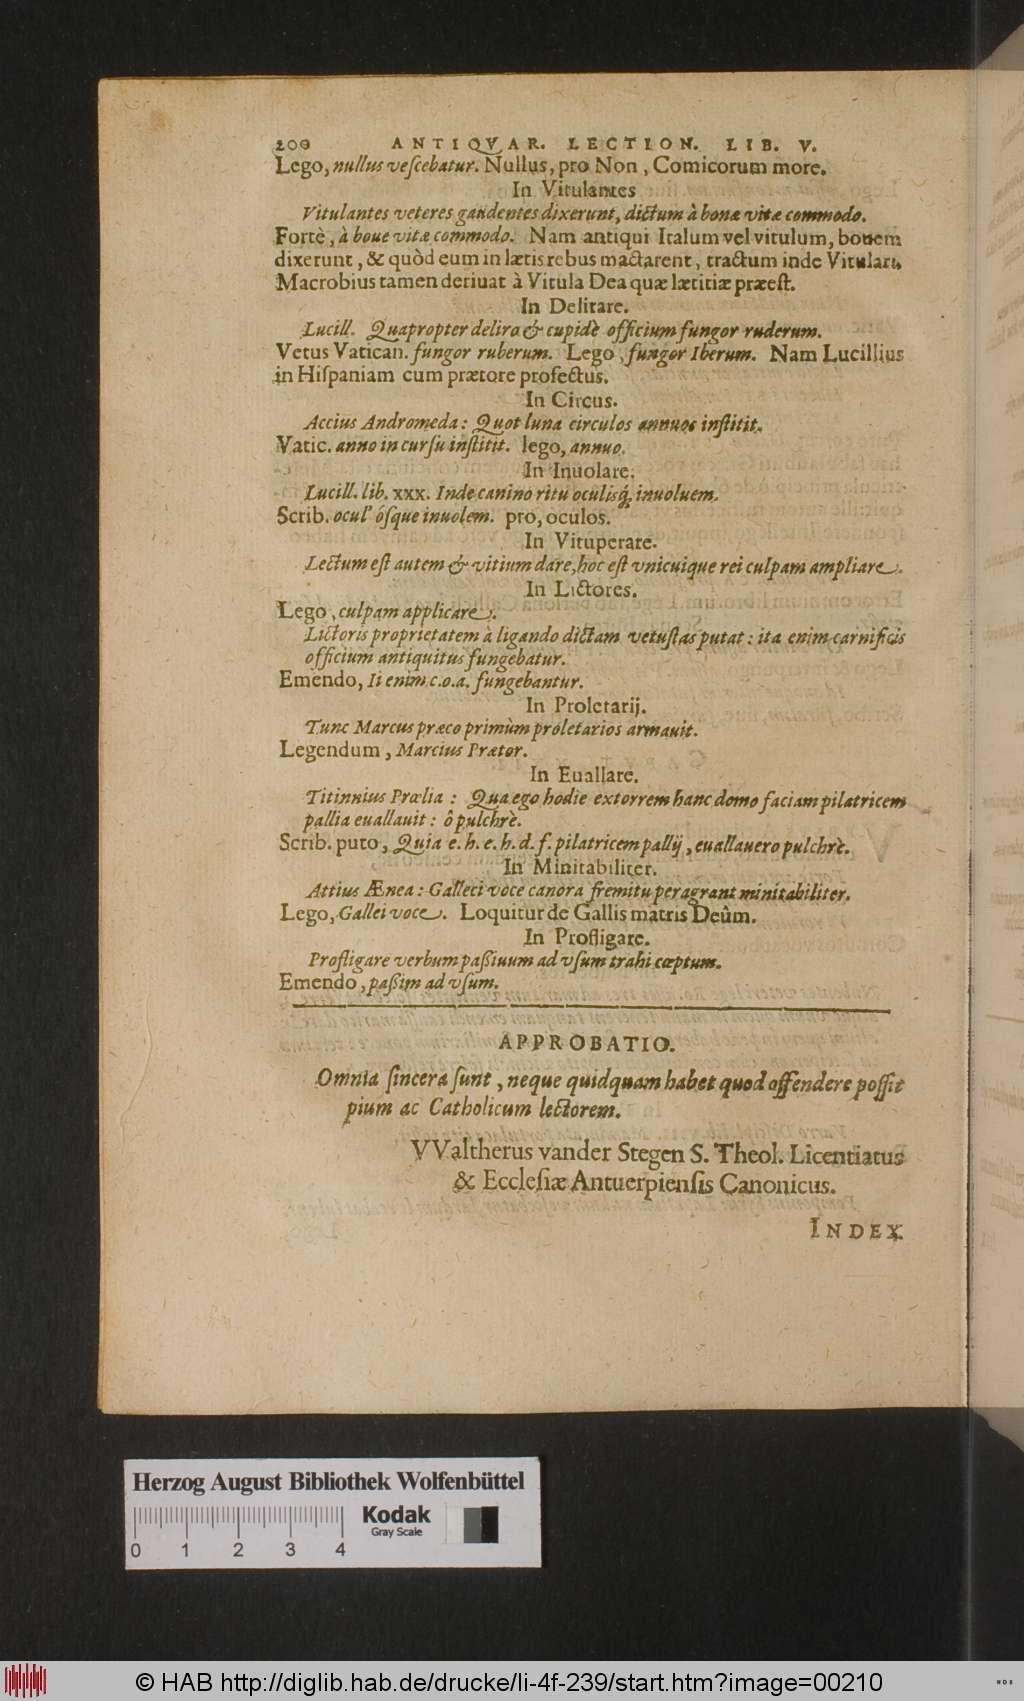 200 ANTIQVAR. LECTION. LIB. V.
Lego, nullus veſcebatur. Nullus, pro Non, Comicorum more.
In Vitulantes
Vitulantes veteres gaudentes dixerunt, dictum à bonæ vitæ commodo.
Fortè, à boue vitæ commodo. Nam antiqui Italum vel vitulum, bouem
dixerunt, & quòd eum in lætis rebus mactarent, tractum inde Vitulari,
Macrobius tamen deriuat à Vitula Dea quæ lætitiæ præeſt.
In Delirare.
Lucill. Quapropter delira & cupidè officium fungor ruderum.
Vetus Vatican. fungor ruberum. Lego, fungor Iberum. Nam Lucillius
in Hiſpaniam cum prætore profectus.
In Circus.
Accius Andromeda: Quot luna circulos annuos inſtitit.
Vatic. anno in curſu inſtitit. lego, annuo.
In Inuolare.
Lucill. lib. xxx. Inde canino ritu oculisq́; inuoluem.
Scrib. ocul' óſque inuolem. pro, oculos.
In Vituperare.
Lectum eſt autem & vitium dare, hoc eſt vnicuique rei culpam ampliare.
In Lictores.
Lego, culpam applicare.
Lictoris proprietatem à ligando dictam vetuſtas putat: ita enim carnificis
officium antiquitus fungebatur.
Emendo, Ii enim c. o. a. fungebantur.
In Proletarij.
Tunc Marcus præco primùm proletarios armauit.
Legendum, Marcius Prætor.
In Euallare.
Titinnius Prælia: Qua ego hodie extorrem hanc domo faciam pilatricem
pallia euallauit: ô pulchrè.
Scrib. puto, Quia e. h. e. h. d. f. pilatricem pallij, euallauero pulchrè.
In Minitabiliter.
Attius Ænea: Galleci voce canora fremitu peragrant minitabiliter.
Lego, Gallei voce. Loquitur de Gallis matris Deûm.
In Profligare.
Profligare verbum paßiuum ad vſum trahi cœptum.
Emendo, paßim ad vſum.
APPROBATIO.
Omnia ſincera ſunt, neque quidquam habet quod offendere poſſit
pium ac Catholicum lectorem.
VValtherus vander Stegen S. Theol. Licentiatus
& Eccleſiæ Antuerpienſis Canonicus.
INDEX
Herzog August Bibliothek Wolfenbüttel
Kodak
Gray Scale
0 1 2 3 4
© HAB http://diglib.hab.de/drucke/li-4f-239/start.htm?image=00210